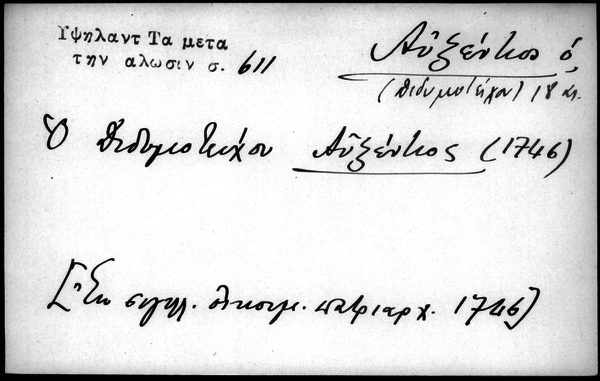 Ὑψηλαντ Τα μετα
την αλωσιν σ. 611
Αὐξέντιος ὁ
(Διδυμοτείχου) 18 αι.
Ὁ Διδυμοτείχου Αὐξέντιος (1746)
[Ἐκ σιγιλ. οἰκουμ. πατριαρχ. 1746]